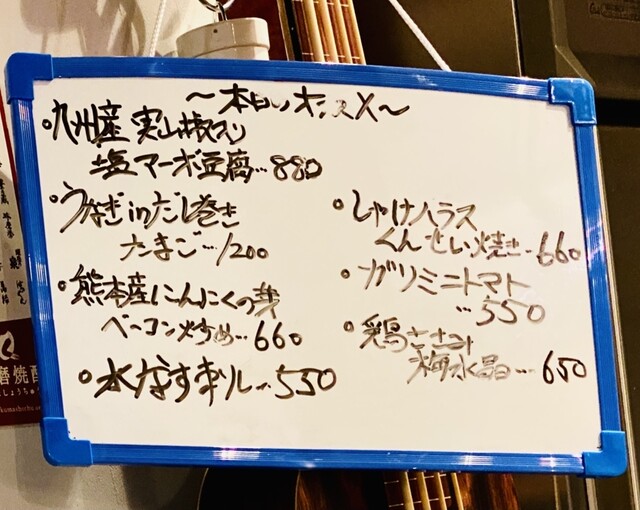 ～本日のオススメ～
・九州産 実山椒入り
塩マーボ豆腐…880
・うなぎinだし巻き
たまご…1200
・熊本産にんにくの芽
ベーコン炒め…660
・水なす刺し…550
・しゃけハラス
くんせい焼き…660
・ガリミニトマト
…550
・鶏ささみ
梅水晶…650
磨焼酎